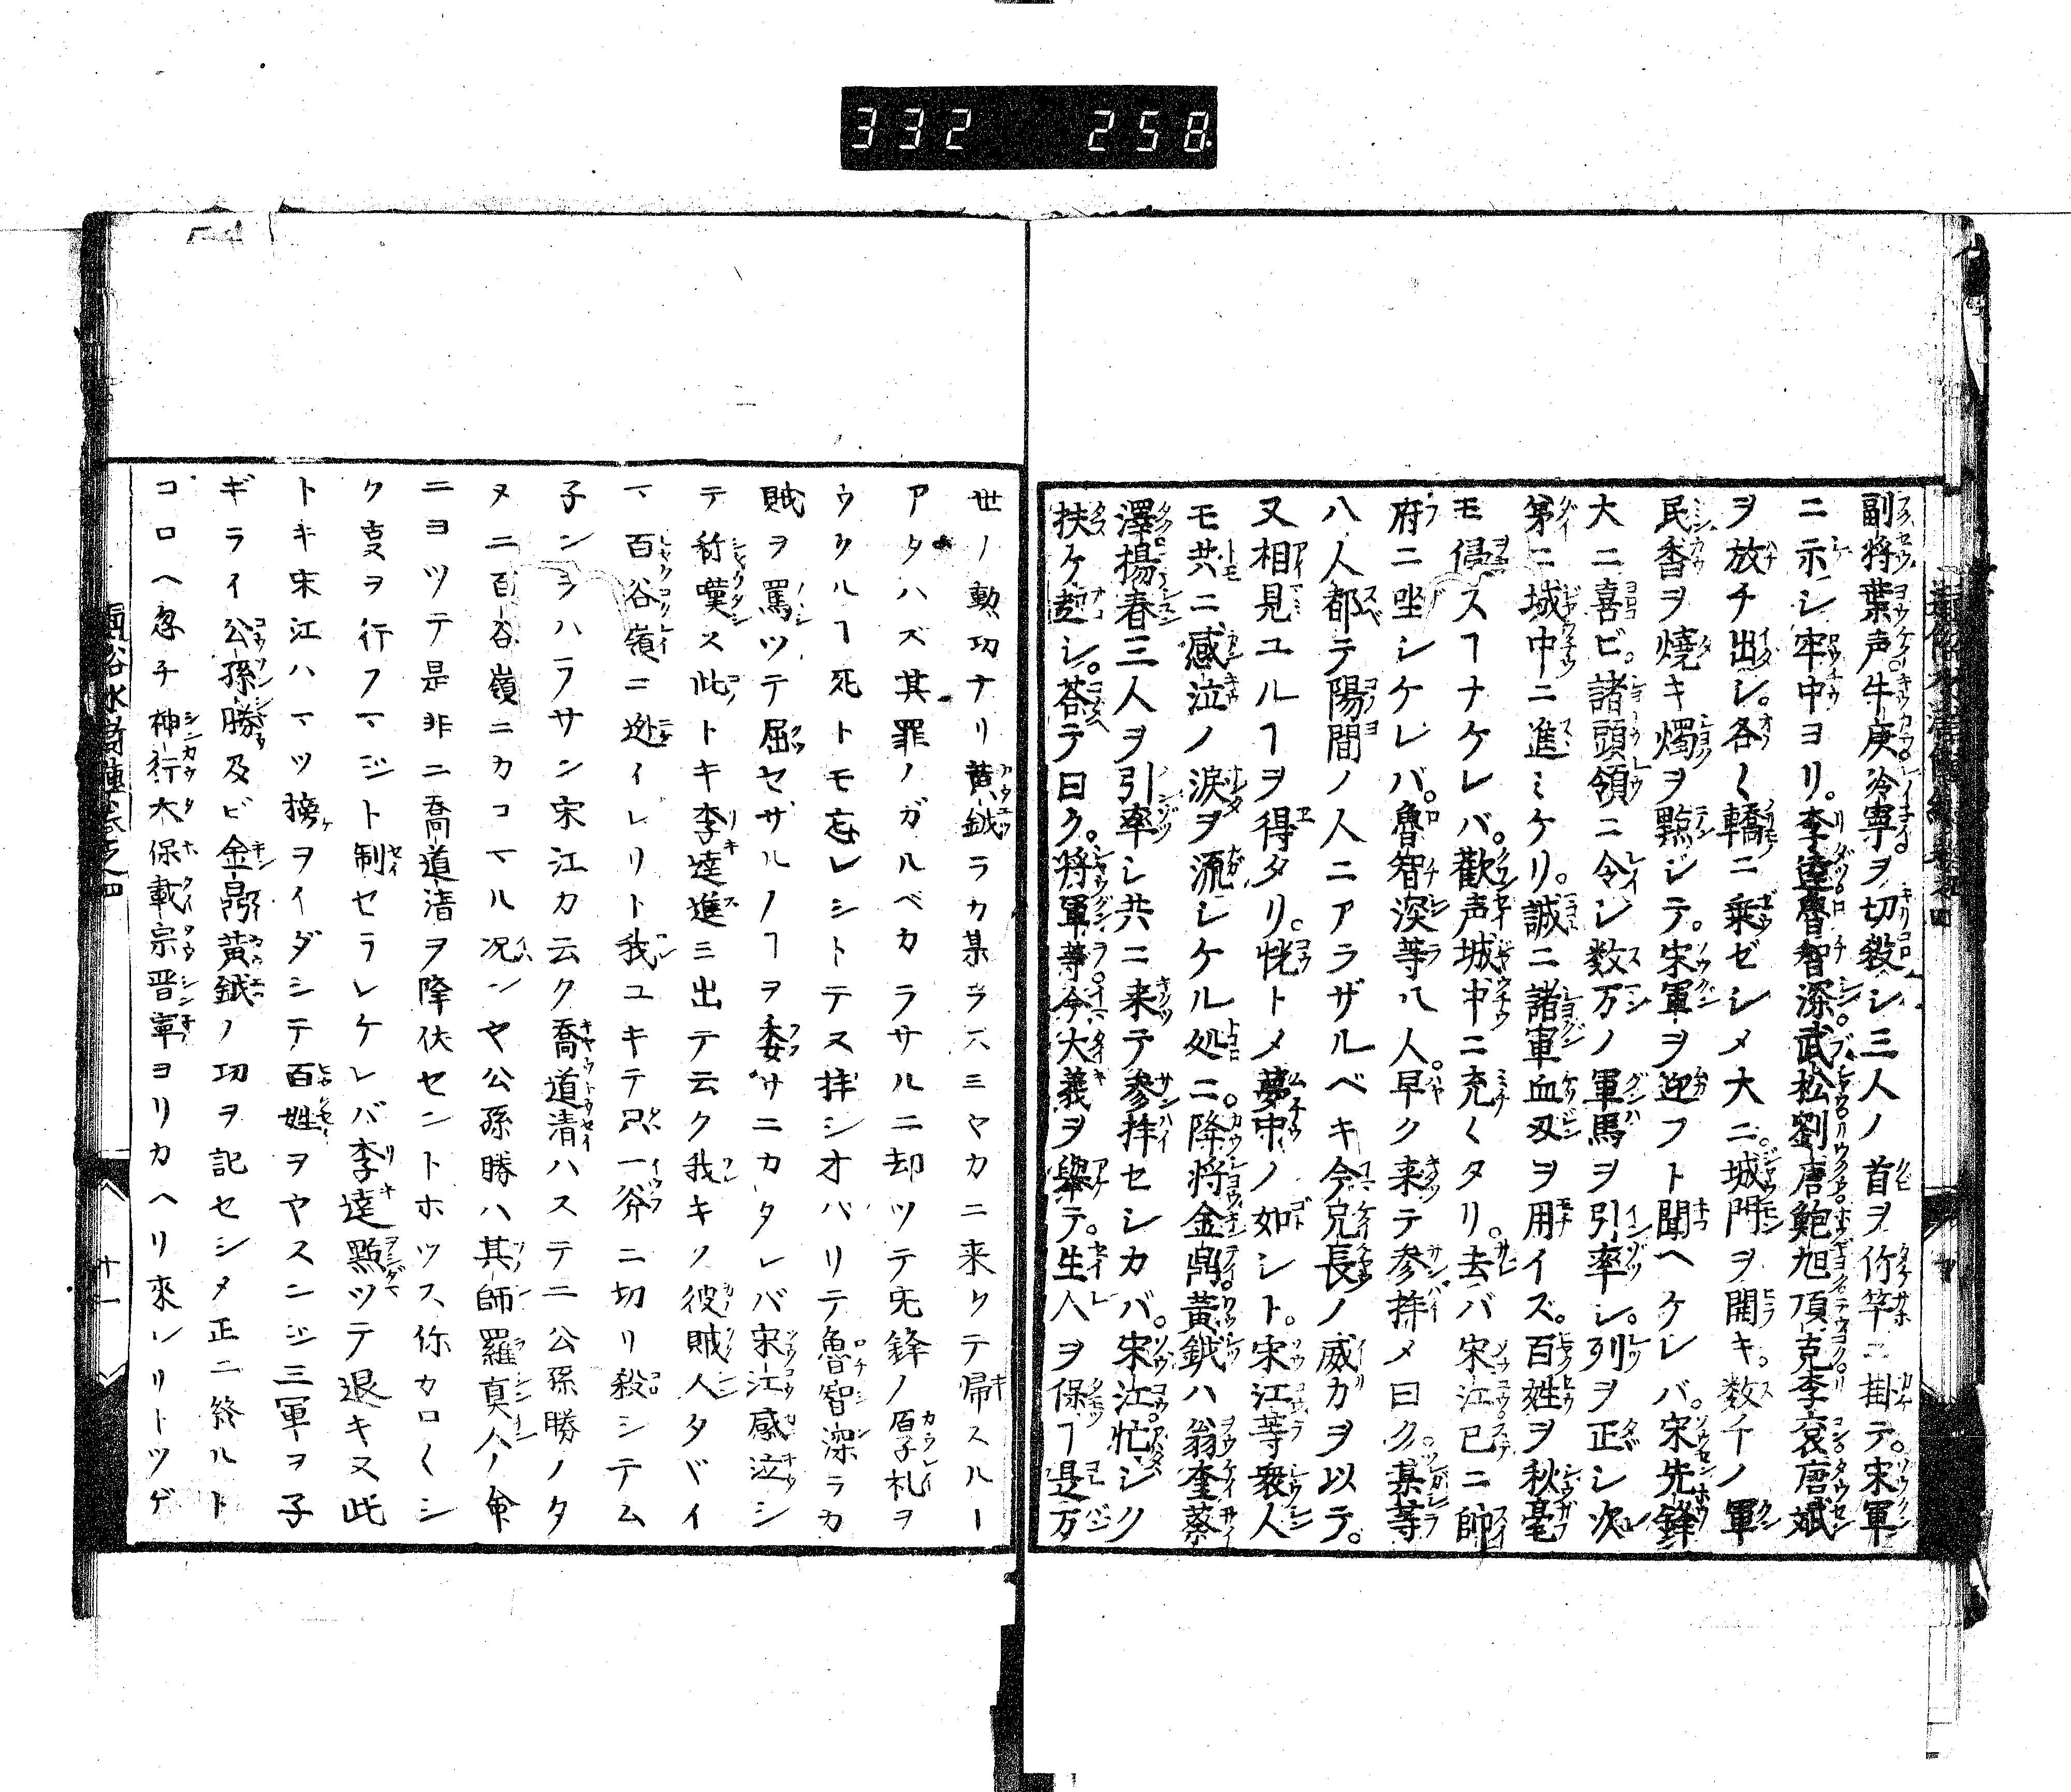 332 258
副将葉声牛庚冷寧ヲ切殺シ三人ノ首ヲ竹竿ニ掛テ。宋軍
ニ示シ牢中ヨリ。李逵魯智深武松劉唐鮑旭項充李袞唐斌
ヲ放チ出シ。各〱轎ニ乗ゼシメ大ニ城門ヲ開キ。数千ノ軍
民香ヲ燒キ燭ヲ點ジテ。宋軍ヲ迎フト聞ヘケレバ。宋先鋒
大ニ喜ビ。諸頭領ニ令シ数万ノ軍馬ヲ引率シ。列ヲ正シ次
第ニ城中ニ進ミケリ。誠ニ諸軍血刃ヲ用イズ。百姓ヲ秋毫
モ侵スヿナケレバ。歡声城中ニ充〱タリ。去バ宋江已ニ帥
府ニ坐シケレバ。魯智深等八人。早ク来テ参拝メ曰ク。某等
八人都テ陽間ノ人ニアラザルベキ今兄長ノ威力ヲ以テ。
又相見ユルヿヲ得タリ。恍トメ夢中ノ如シト。宋江等衆人
モ共ニ感泣ノ涙ヲ流シケル処ニ。降将金鼎黄鉞ハ翁奎蔡
澤楊春三人ヲ引率シ共ニ来テ參拝セシカバ。宋江忙シク
扶ケ起シ。荅テ曰ク。将軍等今大義ヲ舉テ。生人ヲ保ヿ是万
世ノ勲功ナリ黄鉞ラカ某ラスミヤカニ来クテ帰スルー
アタハズ其罪ノガルベカラサルニ却ツテ先鋒ノ厚礼ヲ
ウクルヿ死トモ忘レシトテ又拝シオバリテ魯智深ラカ
賊ヲ罵ツテ屈セザルノヿヲ委サニカタレバ宋江感泣シ
テ称嘆ス此トキ李逵進ミ出テ云ク我キソ彼賊人タバイ
マ百谷嶺ニ迯イレリト我ユキテ只一斧ニ切リ殺シテム
子ンヲハラサン宋江カ云ク喬道清ハステニ公孫勝ノタ
メニ百谷嶺ニカコマル况ンヤ公孫勝ハ其師羅真人ノ命
ニヨツテ是非ニ喬道清ヲ降伏セントホツス你カロ〱シ
ク叓ヲ行フマジト制セラレケレバ李逵黙ツテ退キヌ此
トキ宋江ハマツ榜ヲイダシテ百姓ヲヤスンジ三軍ヲ子
ギライ公孫勝及ビ金鼎黄鉞ノ功ヲ記セシメ正ニ終ルト
コロヘ忽チ神行太保戴宗晋寧ヨリカヘリ来レリトツゲ
十一